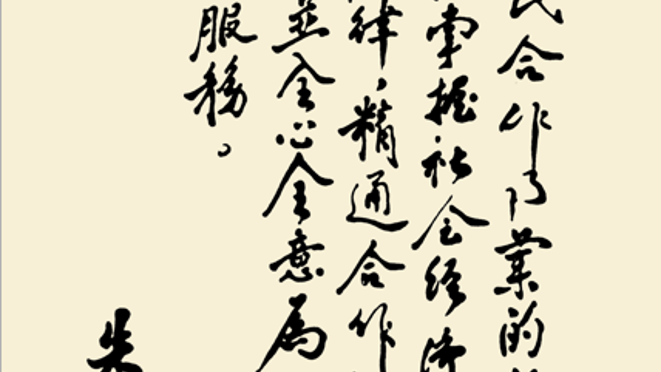 民合作事業的
掌握社会经济
律，精通合作
並全心全意為
服務。
朱